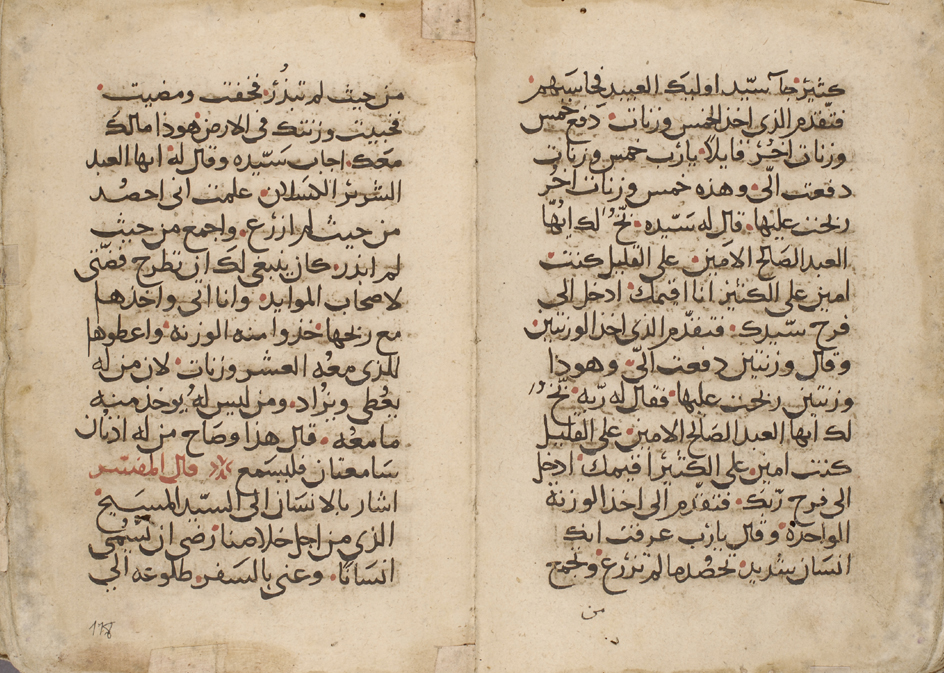 كثيره جآ سيّد اوليك العبيد فحاسبهم
فتقدم الذى اخذ الخمس وزنات دفع خمس
وزنات اخر قايلا يارب خمس وزنات
دفعت الىّ وهذه خمس وزنات اخر
ربحت عليها قال له سيّده نخّ لك ايها
العبد الصالح الامين على القليل كنت
امين على الكثير انا اقيمك ادخل الى
فرح سيّدك فتقدم الذى اخذ الوزنتين
وقال وزنتين دفعت الىّ وهوذا
وزنتين ربحت عليها فقال له ربّه نخّ
لك ايها العبد الصالح الامين على القليل
كنت امين على الكثير اقيمك ادخل
الى فرح ربّك فتقدم الى اخذ الوزنة
الواحدة وقال يارب عرفت انك
انسان شديد تحصد ما لم تزرع وتجمع
من
من حيث لم تبذر فخفت ومضيت
فخبيت وزنتك فى الارض هوذا مالك
معك اجاب سيّده وقال له ايها العبد
الشرير الكسلان علمت انى احصد
من حيث لم ازرع واجمع من حيث
لم ابذر كان ينبغى لك ان تطرح فضتى
لاصحاب الموايد وانا اتى واخذها
مع ربحها خذوا منه الوزنه واعطوها
للذى معه العشر وزنات لان من له
يعطى ويزاد ومن ليس له يوخذ منه
ما معه قال هذا وصاح من له اذنان
سامعتان فليسمع قال المفسر
اشار بالانسان الى السيّد المسيح
الذى من اجل خلاصنا رضى ان يسمى
انسانا وعنى بالسفر طلوعه الى